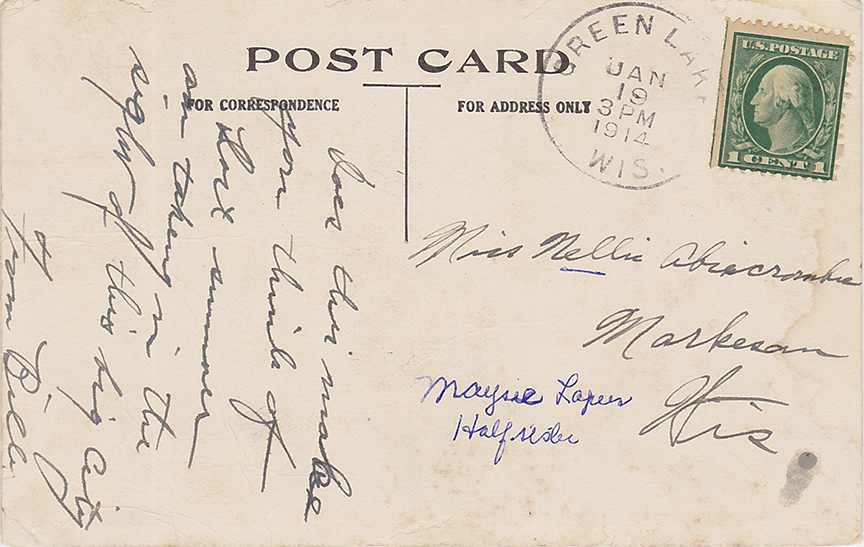 POST CARD
FOR CORRESPONDENCE
FOR ADDRESS ONLY
GREEN LAKE
JAN
19
3 PM
1914
WIS.
U.S. POSTAGE
1 CENT 1
Does this make
you think of
last summer
am taking in the
sights of this big city
From Bill
Miss Nellie Abercrombie
Markesan
Wis
Maysie
Half sister